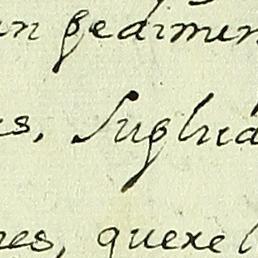 un pedimen
es, Suglid
res, quexel